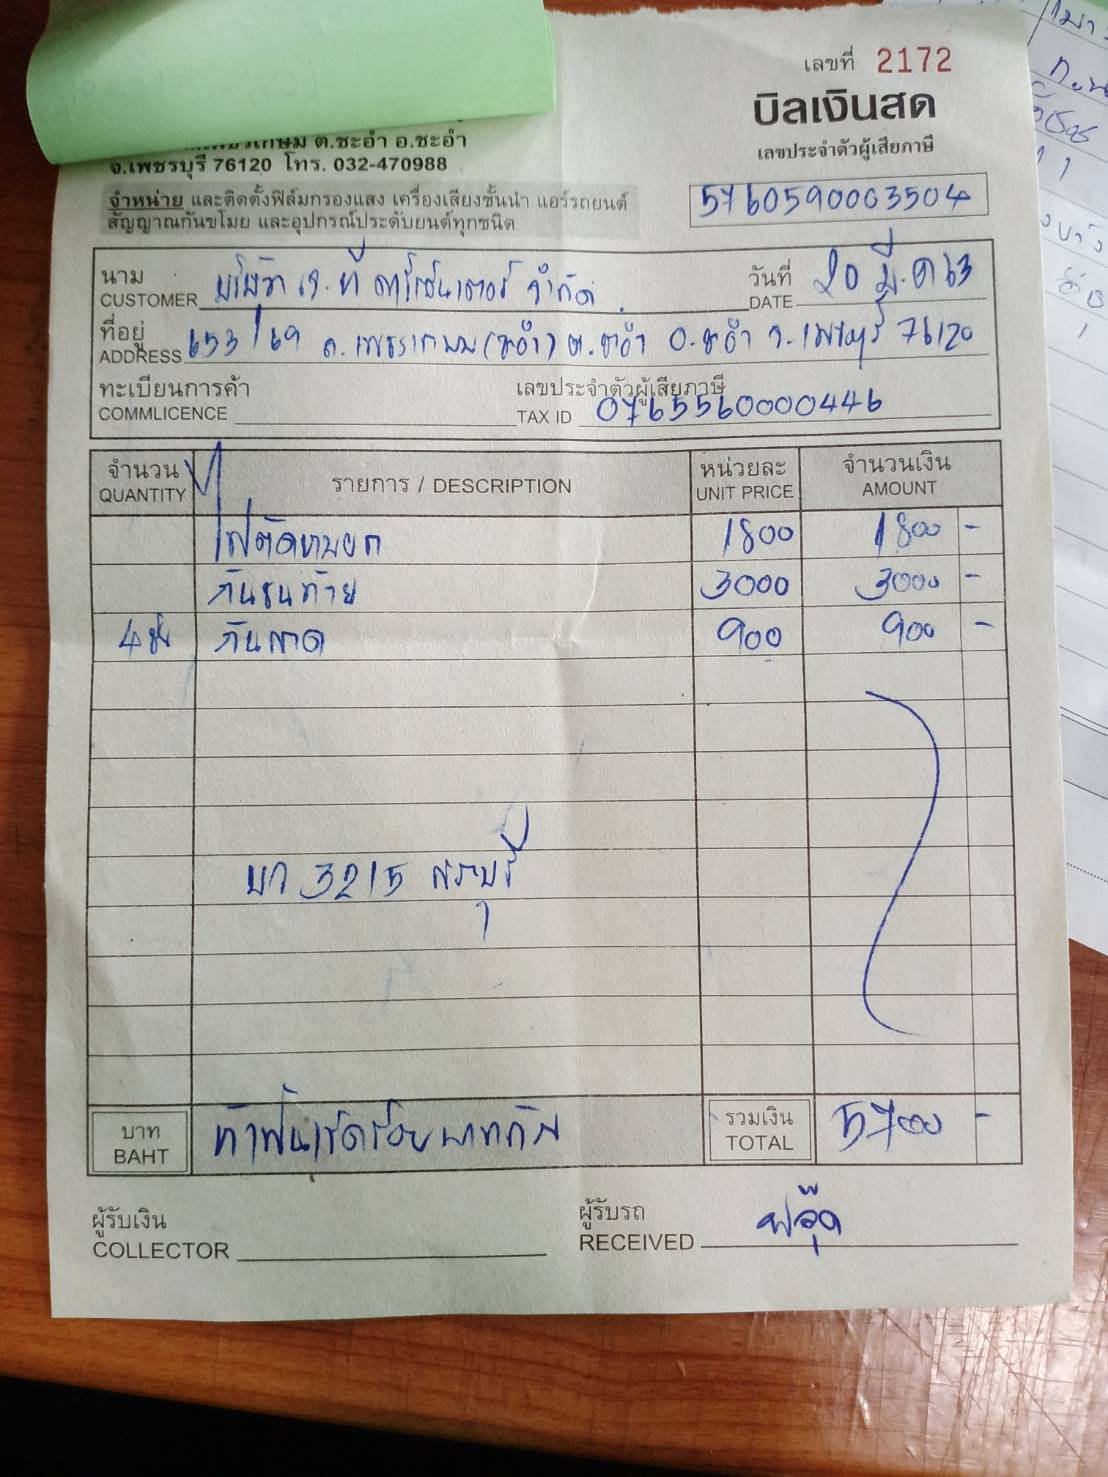 เลขที่ 2172
บิลเงินสด
เลขประจำตัวผู้เสียภาษี
5760590003504
ต.ชะอำ อ.ชะอำ
จ.เพชรบุรี 76120 โทร. 032-470988
จำหน่าย และติดตั้งฟิล์มกรองแสง เครื่องเสียงชั้นนำ แอร์รถยนต์
สัญญาณกันขโมย และอุปกรณ์ประดับยนต์ทุกชนิด
นาม บริษัท เจ.ที จำกัด วันที่ 20 มี.ค 63
CUSTOMER DATE
ที่อยู่ 653/69 ถ.เพชรเกษม (ชะอำ) ต.ชะอำ อ.ชะอำ จ.เพชรบุรี 76120
ADDRESS
ทะเบียนการค้า เลขประจำตัวผู้เสียภาษี
COMMLICENCE TAX ID 0765560000446
จำนวน รายการ / DESCRIPTION หน่วยละ จำนวนเงิน
QUANTITY UNIT PRICE AMOUNT
ไฟตัดหมอก 1800 1800 -
กันชนท้าย 3000 3000 -
4 ชิ้น กันสาด 900 900 -
บก 3215 สระบุรี
บาท ห้าพันเจ็ดร้อยบาทถ้วน รวมเงิน 5700 -
BAHT TOTAL
ผู้รับเงิน ผู้รับรถ
COLLECTOR RECEIVED